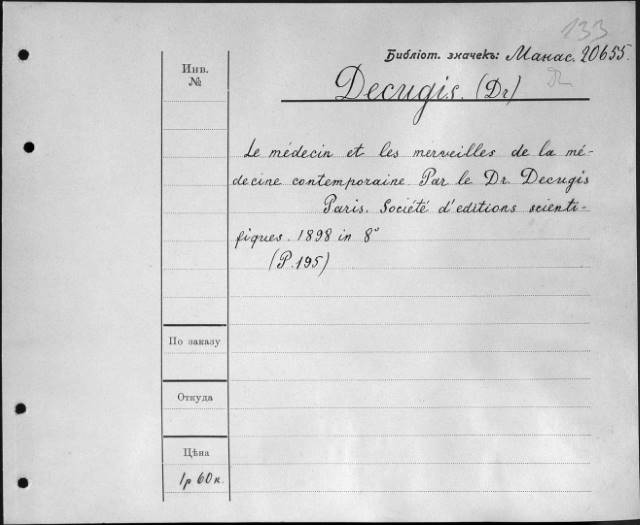 133
Библіот. значекъ: Манас. 20655.
Инв.
№
Decugis. (Dr)
Le médecin et les merveilles de la mé-
decine contemporaine Par le Dr. Decugis
Paris. Société d'editions scienti-
fiques. 1898 in 8°
(P. 195)
По заказу
Откуда
Цѣна
1р 60к.